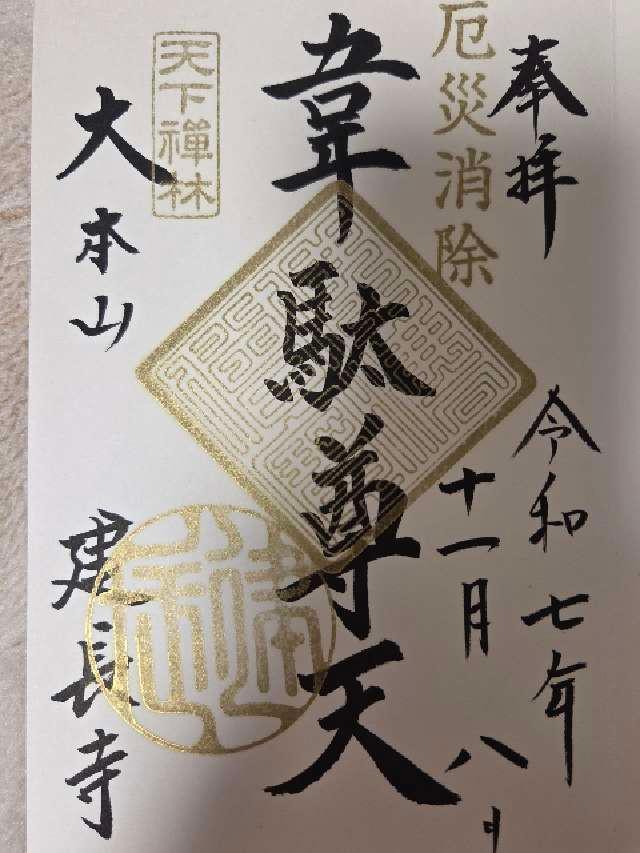 奉拝
令和七年
厄災消除
十一月八日
韋駄尊天
天下禅林
大本山
建長寺